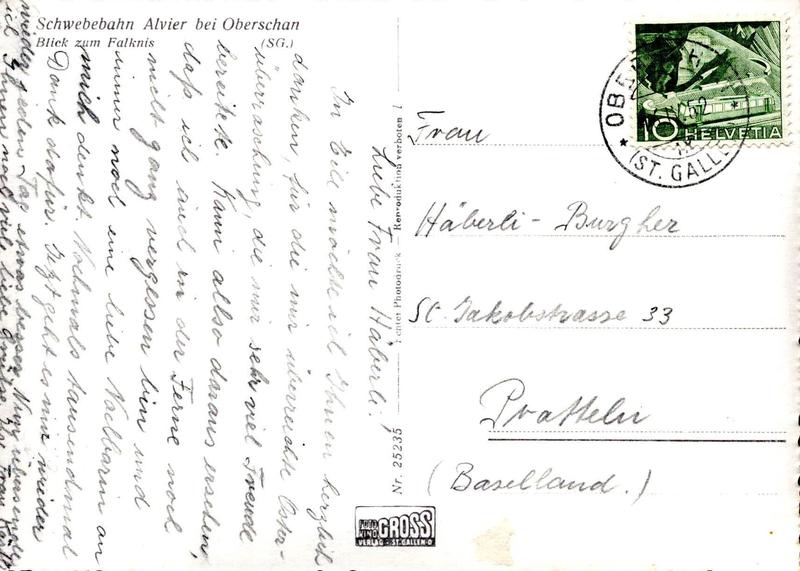 Schwebebahn Alvier bei Oberschan
Blick zum Falknis (SG.)
Liebe Frau Häberli!
In Eil möchte ich Ihnen herzlich
danken, für die mir überreichte Oster-
überraschung, die mir sehr viel Freude
bereitete. Kann allso daraus ersehen,
daß ich auch in der Ferne noch
nicht ganz vergessen bin und
immer noch eine liebe Nachbarin an
mich denkt. Nochmals tausendmal
Dank dafür. Jetzt geht es mir wieder
wieder jeden Tag etwas besser. Nun
ich Ihnen noch viele liebe Grüsse. Ihre Frau
Nr. 25235
Photodruck — Reproduktion verboten
FOTO KINO GROSS
VERLAG - ST.GALLEN-O
10 HELVETIA
(ST. GALLEN)
Frau
Häberli-Burgher
St. Jakobstrasse 33
Pratteln
(Baselland.)